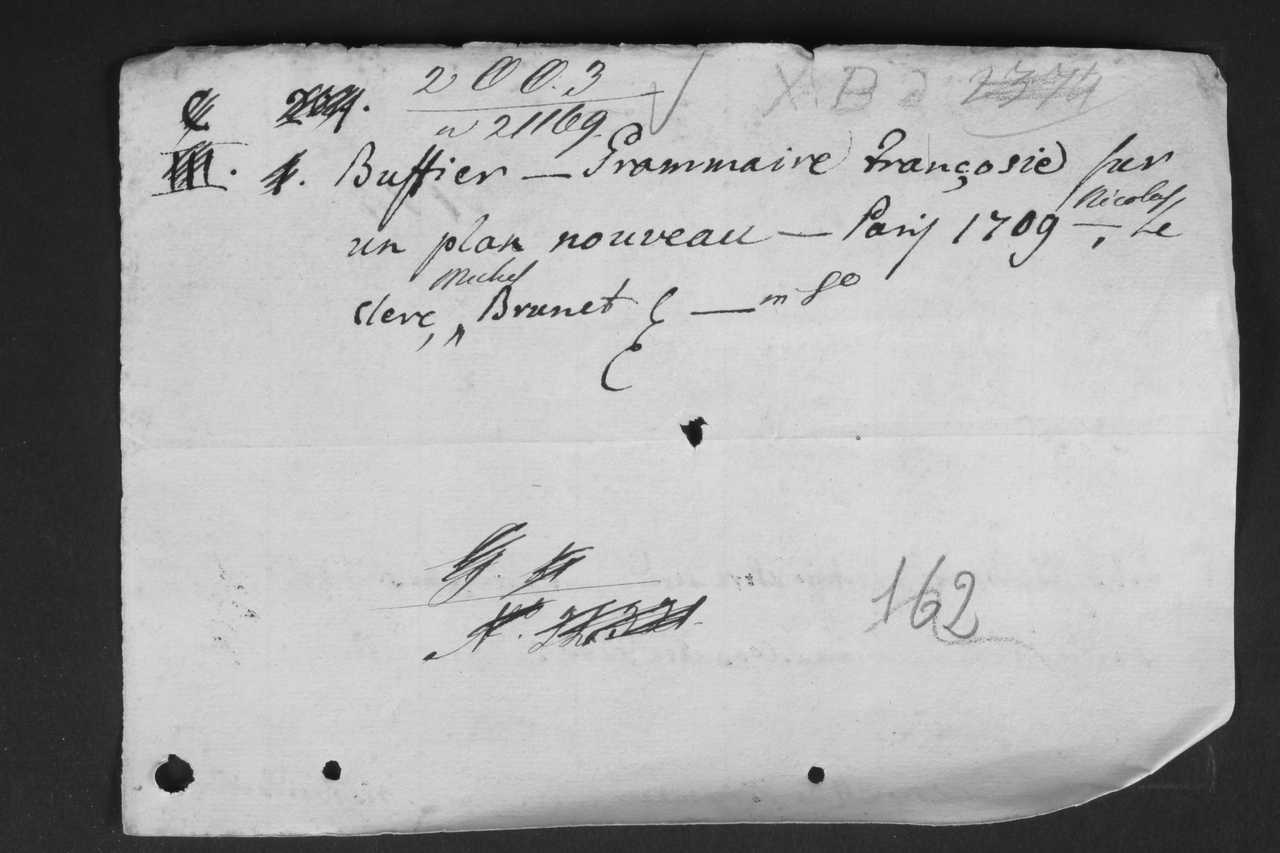 2 0 0. 3
n 21169
X B d
Buffier — Grammaire françosie sur
un plan nouveau — Paris 1709 —, Nicolas Le
Clerc, Michel Brunet &c — in 8º
162